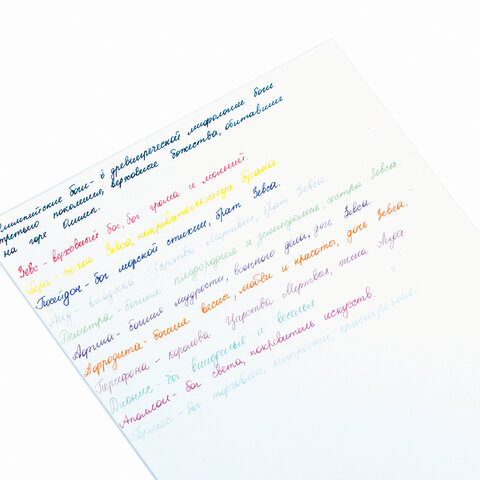 Олимпийские боги - в древнегреческой мифологии боги
третьего поколения, верховные божества, обитавшие
на горе Олимп.
Зевс - верховный бог, бог грома и молний.
Гера - жена Зевса, покровительница брака.
Посейдон - бог морской стихии, брат Зевса.
Аид - владыка Царства Мертвых, брат Зевса.
Деметра - богиня плодородия и земледелия, сестра Зевса.
Афина - богиня мудрости, военного дела, дочь Зевса.
Афродита - богиня весны, любви и красоты, дочь Зевса.
Персефона - королева Царства Мертвых, жена Аида.
Дионис - бог виноделья и веселья
Аполлон - бог света, покровитель искусств.
Гермес - бог торговли, хитрости,